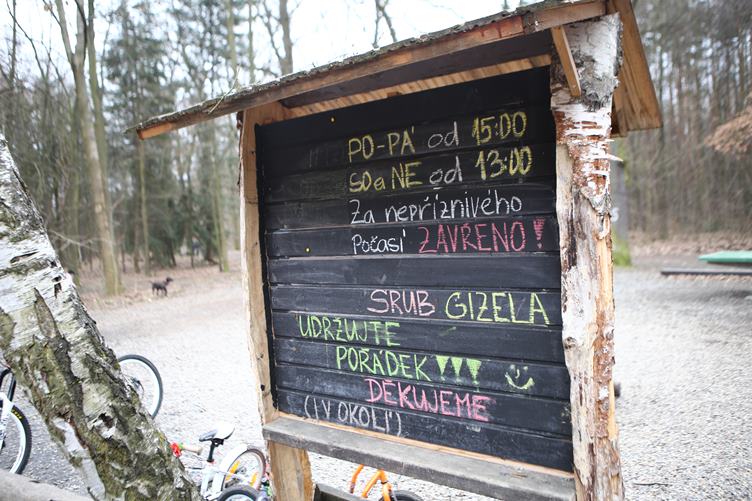 PO-PÁ od 15:00
SO a NE od 13:00
Za nepříznivého
Počasí ZAVŘENO!
SRUB GIZELA
UDRŽUJTE
POŘÁDEK !!!
DĚKUJEME
(I V OKOLÍ)